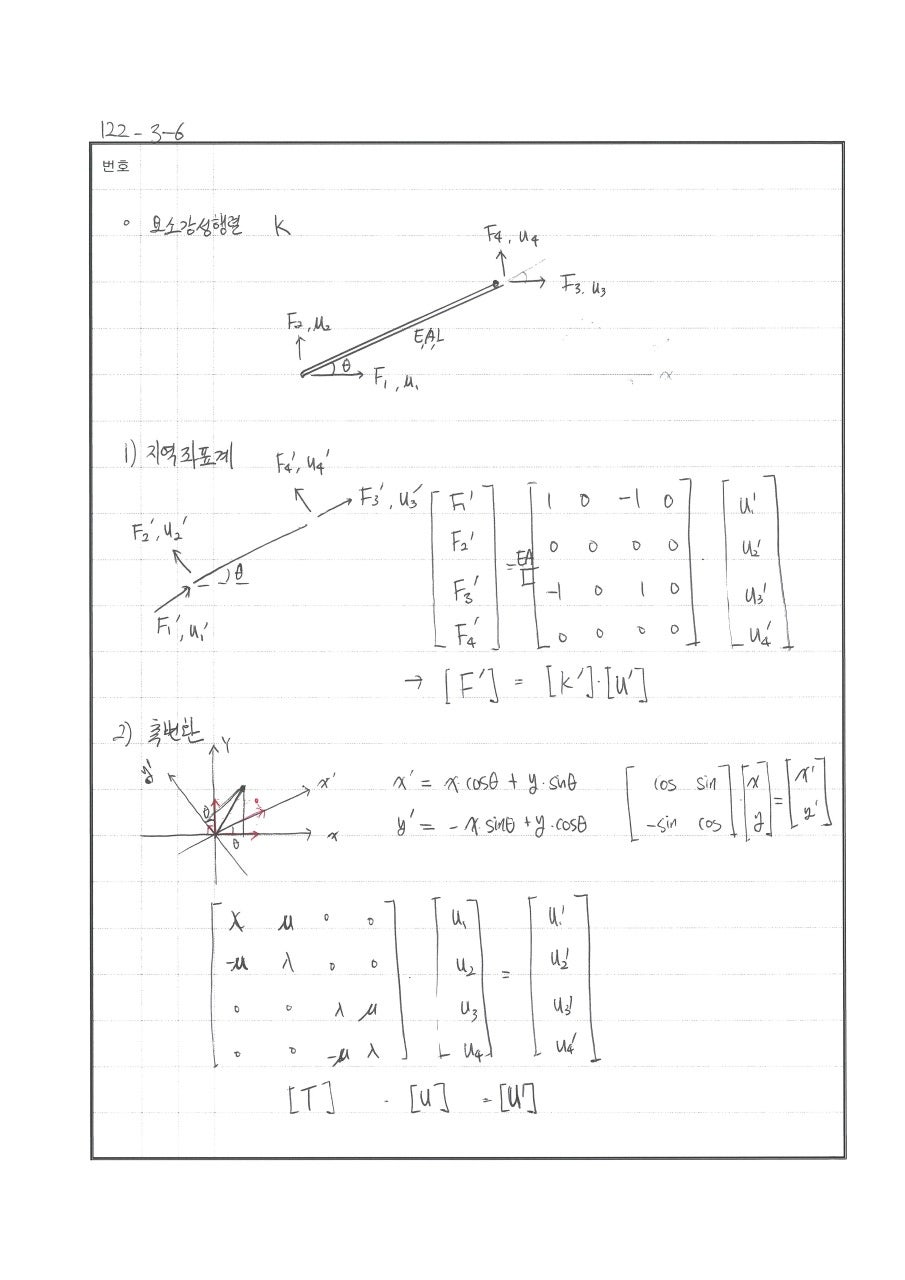 122-3-6
번호
∘ 요소강성행렬 K
F4, u4
F3, u3
F2, u2
E,A,L
θ
F1, u1
x
1) 지역좌표계
F4', u4'
F3', u3'
F2', u2'
θ
F1', u1'
[F1' F2' F3' F4'] = EA/L [1 0 -1 0; 0 0 0 0; -1 0 1 0; 0 0 0 0] · [u1' u2' u3' u4']
→ [F'] = [K']·[U']
2) 축변환
Y
y'
x'
θ
x
θ
x' = x·cosθ + y·sinθ
y' = -x·sinθ + y·cosθ
[cos sin; -sin cos] [x; y] = [x'; y']
[λ μ 0 0; -μ λ 0 0; 0 0 λ μ; 0 0 -μ λ] · [u1 u2 u3 u4] = [u1' u2' u3' u4']
[T] · [U] = [U']